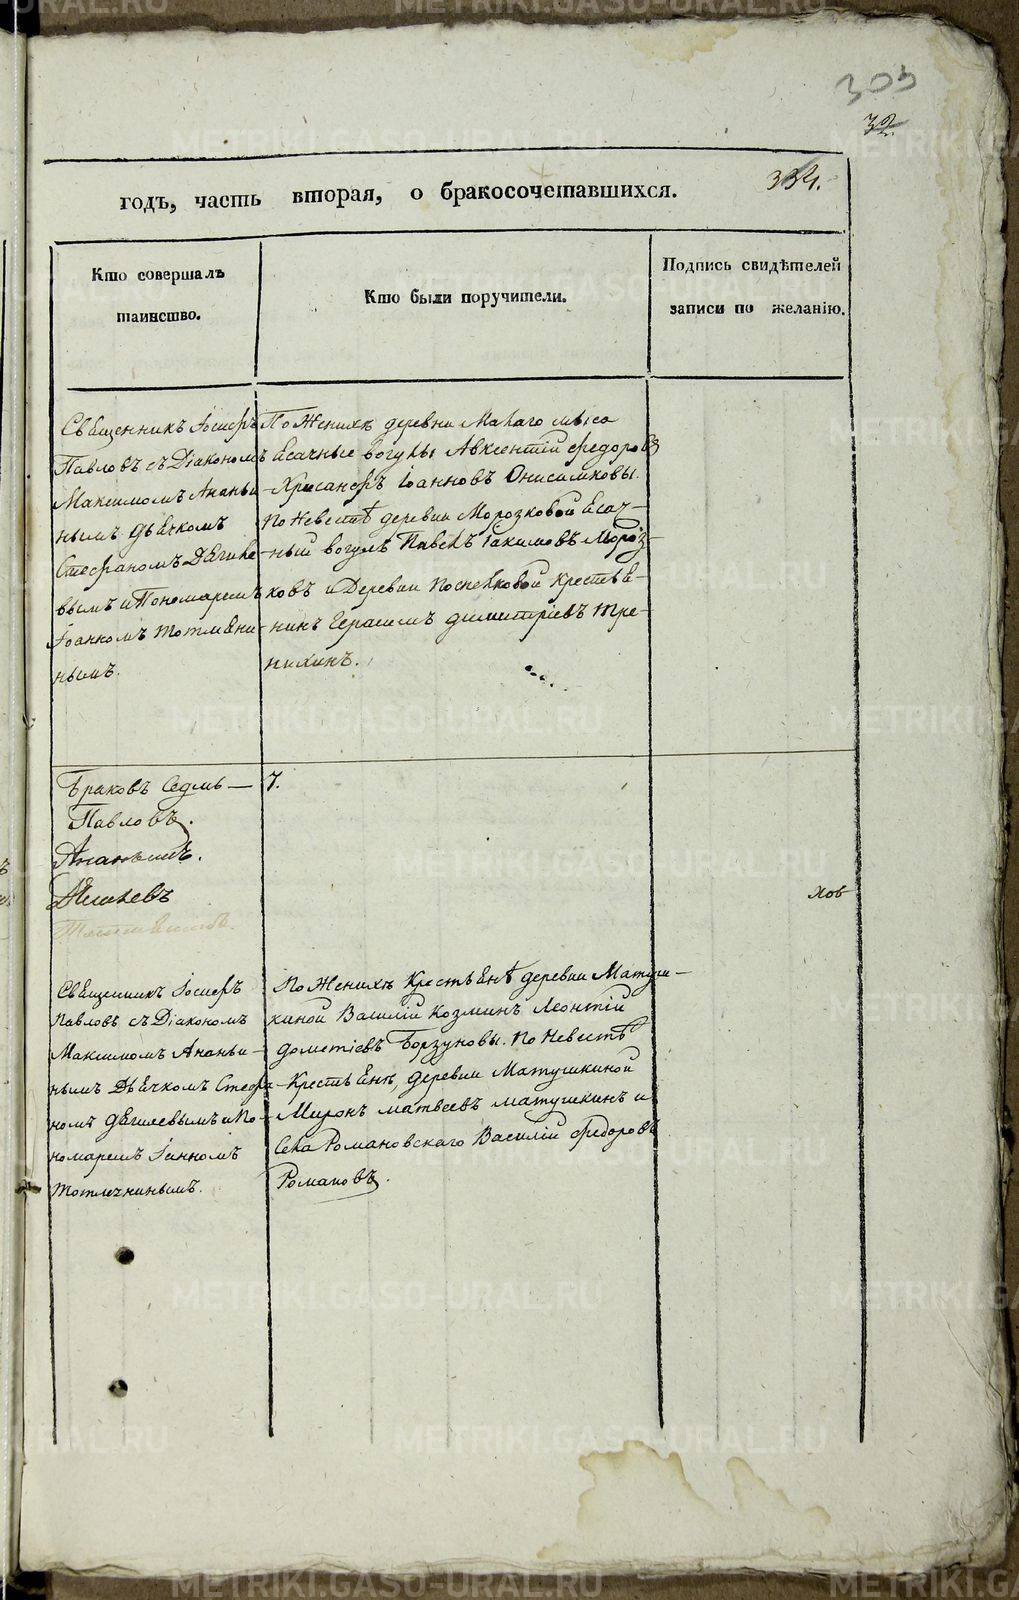 305
32
334.
годъ, часть вторая, о бракосочетавшихся.
Кто совершалъ
таинство.
Кто были поручители.
Подпись свидѣтелей
записи по желанію.
Священникъ Іосифъ
Павловъ съ Діакономъ
Максимомъ Ананьи-
нымъ дьячкомъ
Стефаномъ Дягиле-
вымъ и Пономаремъ
Іоанномъ Тотмяни-
нымъ.
По Женихѣ деревни Малаго мыса
Ясачные вогулы Авксентій Федоровъ
Хрисанфъ Іоанновъ Онисимковы.
По Невестѣ деревни Морозковой Ясач-
ный вогулъ Павелъ Іакимовъ Мороз-
ковъ и Деревни Поспелковой крестья-
нинъ Герасимъ Димитріевъ Тре-
нихинъ.
Браковъ Седмь — 7.
Павловъ.
Ананьинъ.
Дягилевъ
Тотмянинъ.
хов
Священникъ Іосифъ
Павловъ съ Діакономъ
Максимомъ Ананьи-
нымъ Дьячкомъ Стефа-
номъ Дягилевымъ и По-
номаремъ Іанномъ
Тотмянинымъ.
По Женихѣ Крестьянѣ деревни Матуш-
киной Василій Козминъ Леонтій
Дометіевъ Борзуновы. По Невестѣ
Крестьянѣ, деревни Матушкиной
Миронъ Матвеевъ Матушкинъ и
Села Романовскаго Василій Федоровъ
Романовъ.
METRIKI.GASO-URAL.RU